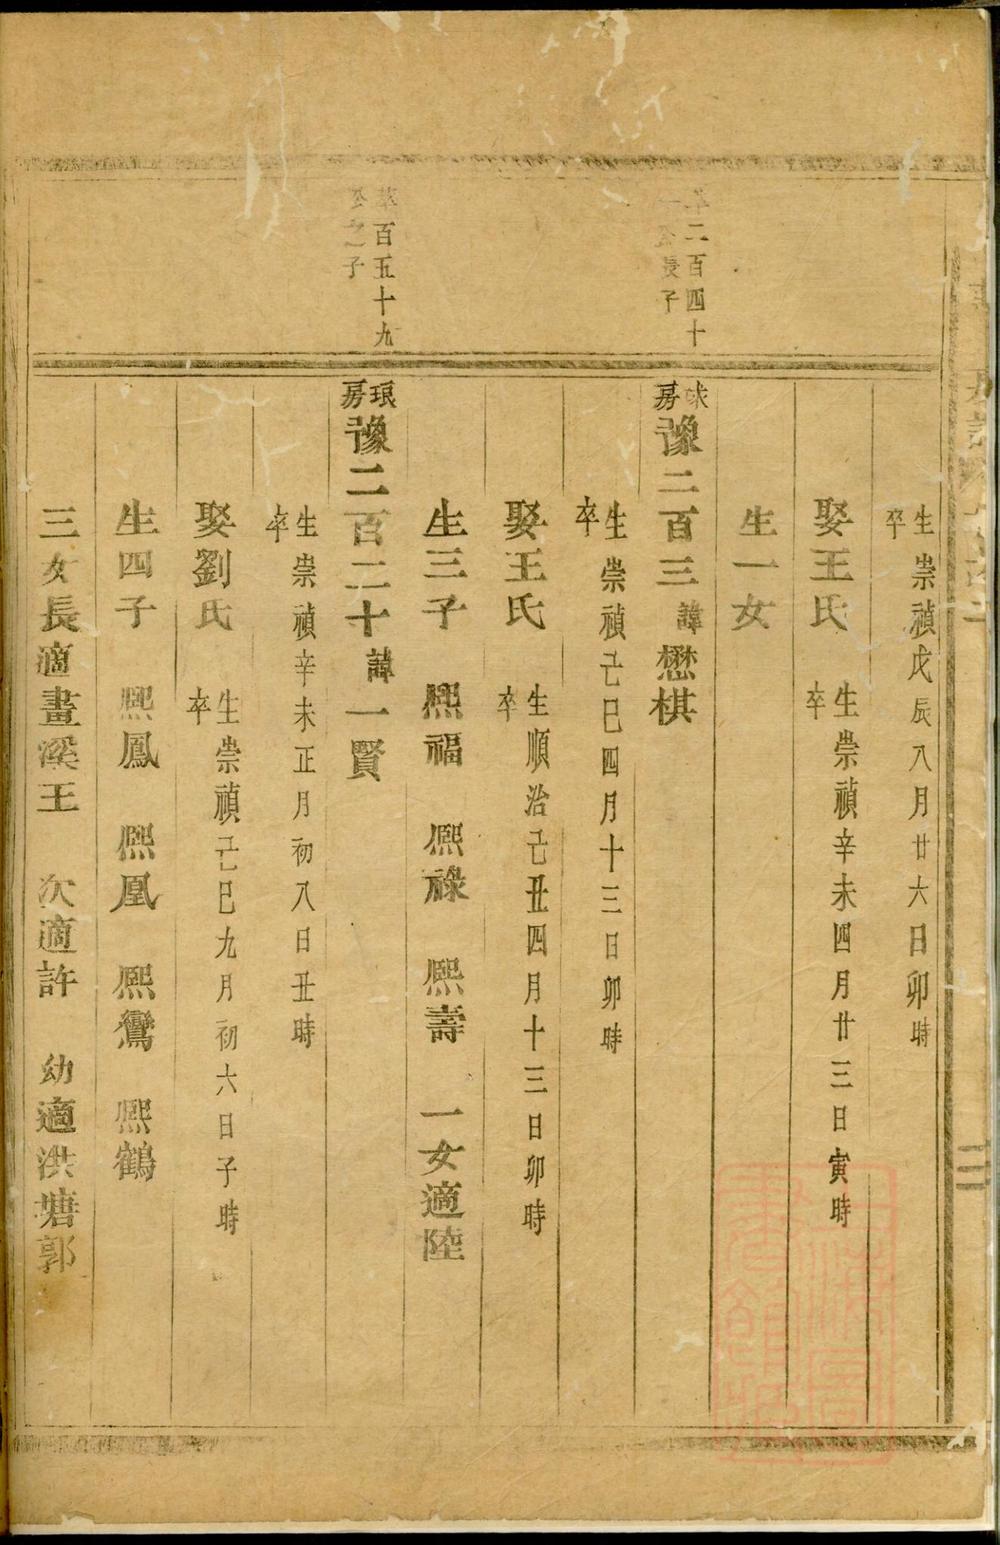 生崇禎戊辰八月廿六日卯時
卒
娶王氏
生崇禎辛未四月廿三日寅時
卒
生一女
二百四十
長子
房
豫二百三諱懋棋
生崇禎己巳四月十三日卯時
卒
娶王氏
生順治己丑四月十三日卯時
卒
生三子 熈福 熈祿 熈壽 一女適陸
百五十九
之子
琅房
豫二百二十諱一賢
生崇禎辛未正月初八日丑時
卒
娶劉氏
生崇禎己巳九月初六日子時
卒
生四子 熈鳳 熈凰 熈鸞 熈鶴
三女長適畫溪王 次適許 幼適洪塘郭